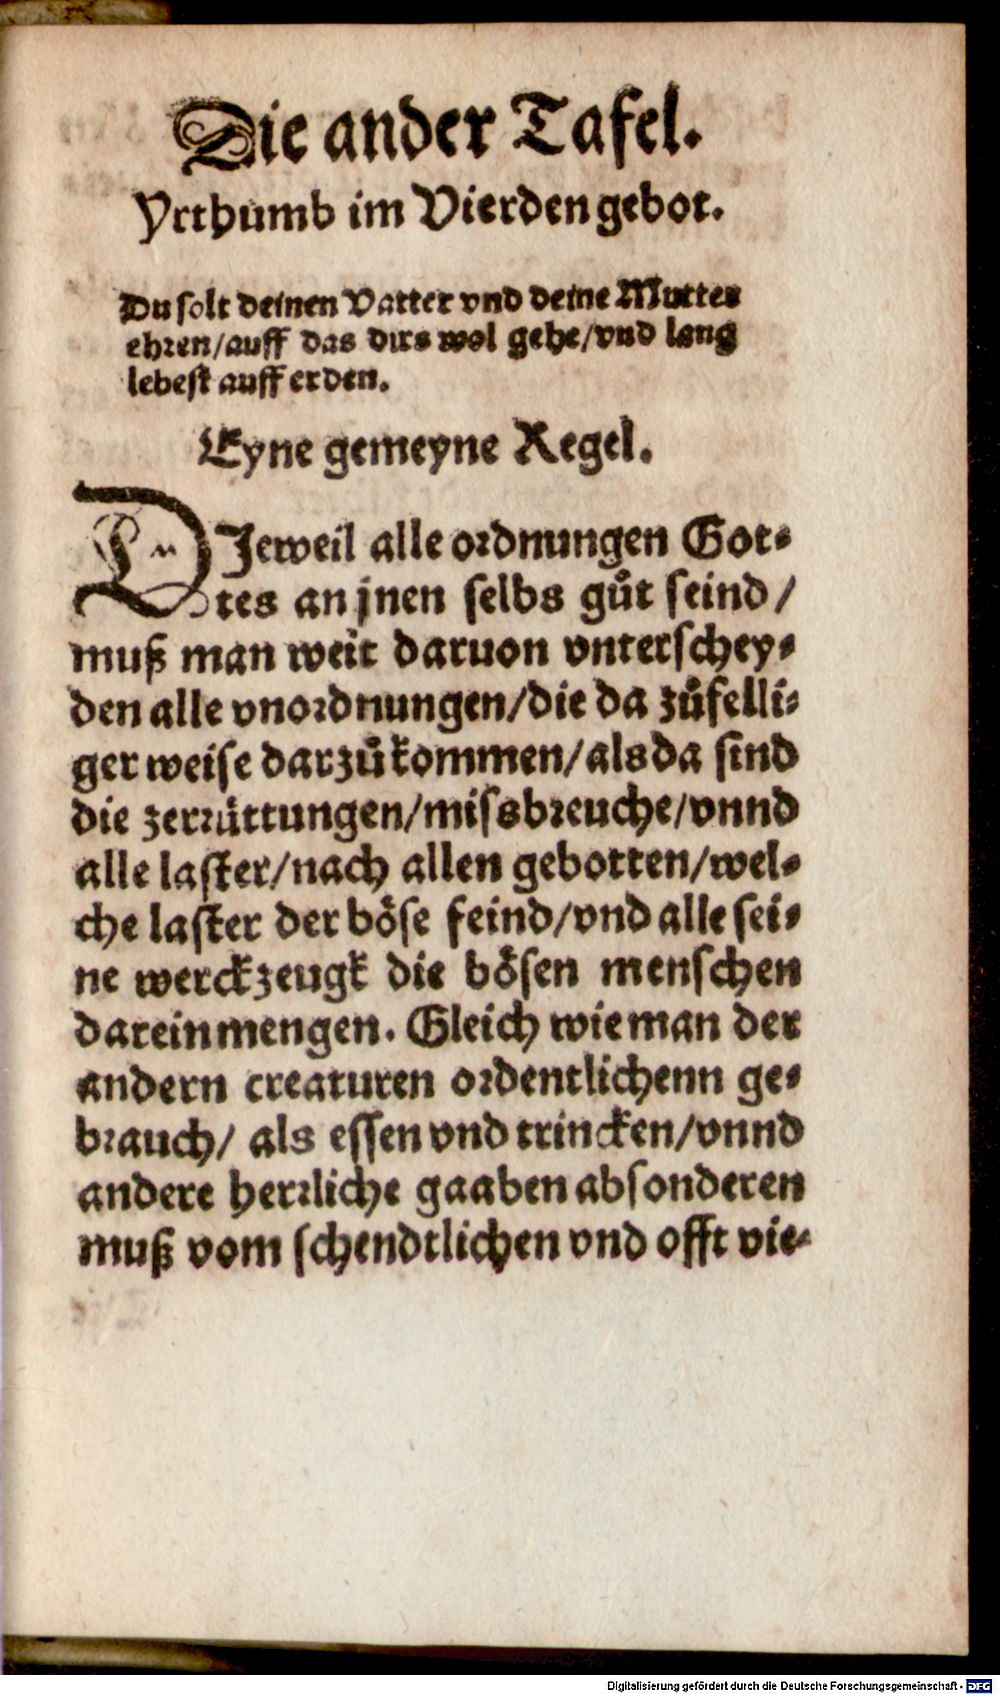 Die ander Tafel.
Yrthumb im Vierden gebot.
Du solt deinen Vatter vnd deine Mutter
ehren/auff das dirs wol gehe/vnd lang
lebest auff erden.
Eyne gemeyne Regel.
DJeweil alle ordnungen Got-
tes an jnen selbs gůt seind/
muß man weit daruon vnterschey-
den alle vnordnungen/die da zůfelli-
ger weise darzů kommen/als da sind
die zerrüttungen/missbreuche/vnnd
alle laster/nach allen gebotten/wel-
che laster der böse feind/vnd alle sei-
ne werckzeugk die bösen menschen
darein mengen. Gleich wie man der
andern creaturen ordentlichenn ge-
brauch/ als essen vnd trincken/vnnd
andere herrliche gaaben absonderen
muß vom schendtlichen vnd offt vie-
Digitalisierung gefördert durch die Deutsche Forschungsgemeinschaft - DFG